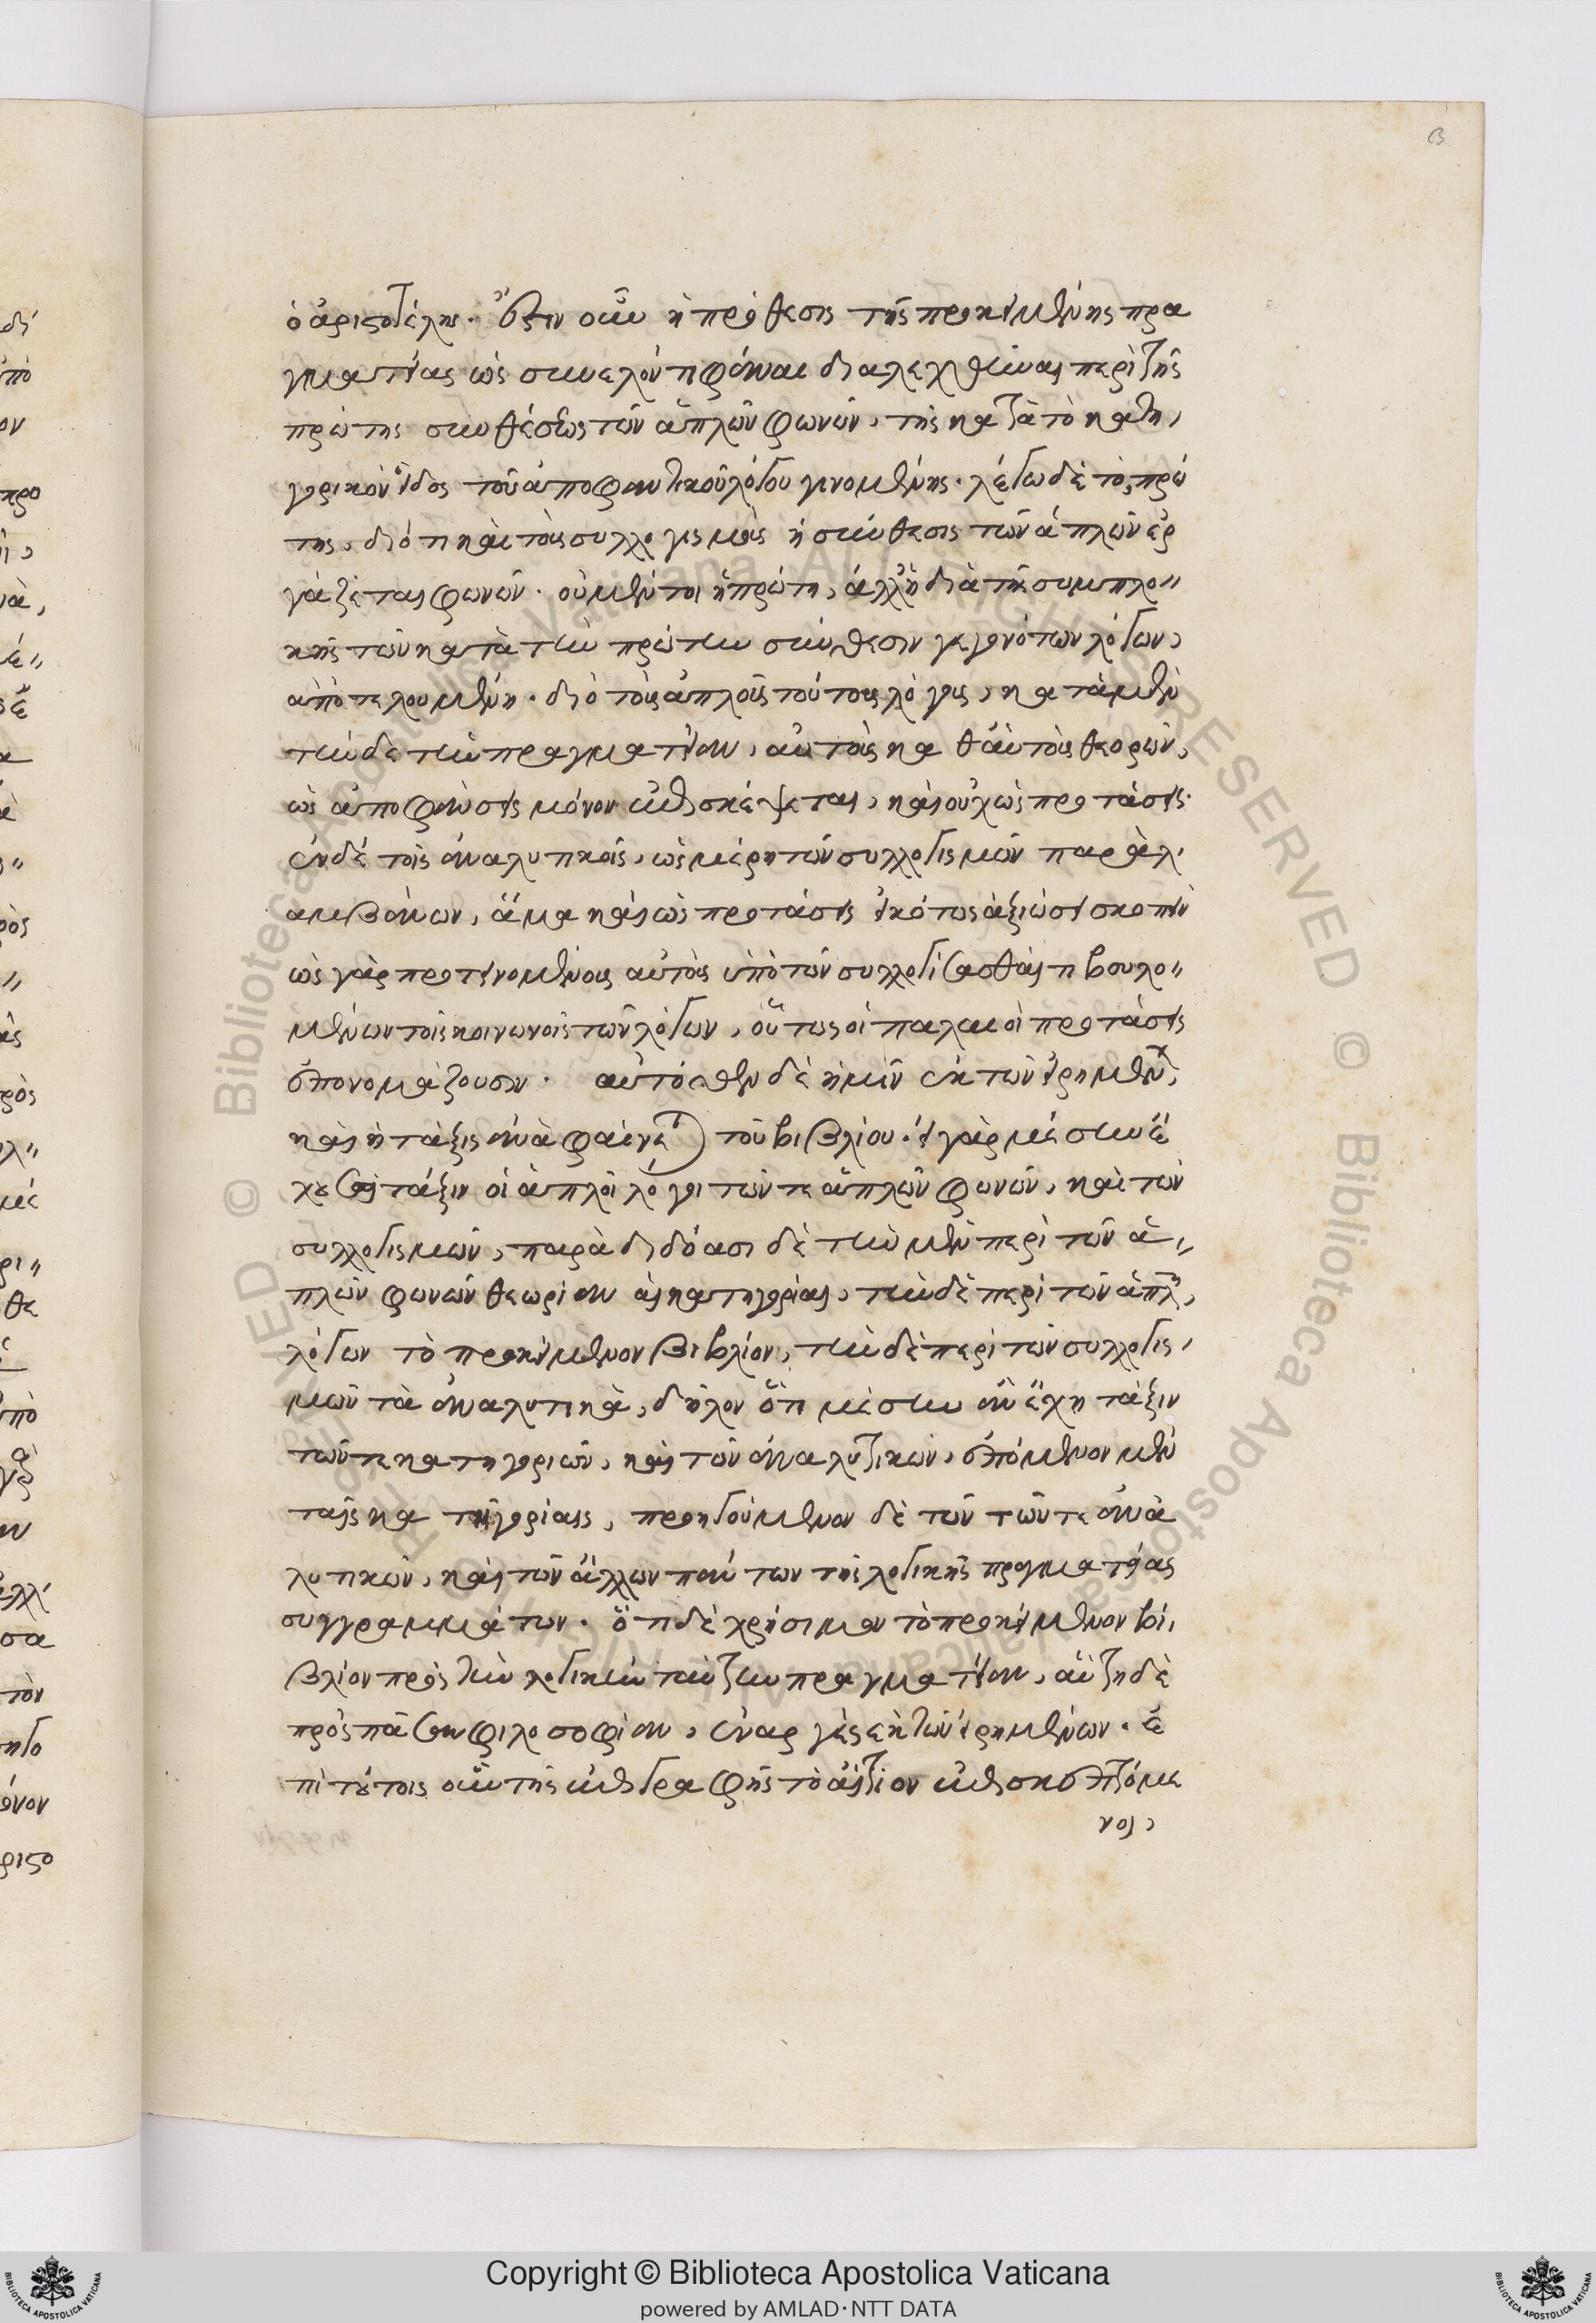 β
ὁ ἀριστοτέλης. ἔστιν οὖν ἡ πρόθεσις τῆς προκειμένης πρα
γματείας ὡς συνελόντι φάναι διαλεχθῆναι περὶ τῆς
πρώτης συνθέσεως τῶν ἁπλῶν φωνῶν, τῆς κατὰ τὸ κατη,
γορικὸν εἶδος τοῦ ἀποφαντικοῦ λόγου γινομένης. λέγω δὲ τὸ πρώ
της, διότι καὶ τοὺς συλλογισμοὺς ἡ σύνθεσις τῶν ἁπλῶν ἐρ
γάζεται φωνῶν. οὐ μέντοι ἡ πρώτη, ἀλλ' ἡ διὰ τῆς συμπλο"
κῆς τῶν κατὰ τὴν πρώτην σύνθεσιν γεγονότων λόγων,
ἀποτελουμένη. διὸ τοὺς ἁπλοῦς τούτους λόγους, κατὰ μὲν
τήνδε τὴν πραγματείαν, αὐτοὺς καθ' αὑτοὺς θεορῶν,
ὡς ἀποφάνσεις μόνον ἐπισκέψεται, καὶ οὐχ ὡς προτάσεις.
ἐν δὲ τοῖς ἀναλυτικοῖς, ὡς μέρη τῶν συλλογισμῶν παραλ,
αμβάνων, ἅμα καὶ ὡς προτάσεις εἰκότως ἀξιώσει σκοπεῖν
ὡς γὰρ προτεινομένους αὐτοὺς ὑπὸ τῶν συλλογίσασθαί τι βουλο"
μένων τοῖς κοινωνοῖς τῶν λόγων, οὕτως οἱ παλαιοὶ προτάσεις
ἐπονομάζουσιν. αὐτόθεν δὲ ἡμῖν ἐκ τῶν εἰρημένων,
καὶ ἡ τάξις ἀναφαίνεται τοῦ βιβλίου. εἰ γὰρ μέσην ἔ
χουσι τάξιν οἱ ἁπλοῖ λόγοι τῶν τε ἁπλῶν φωνῶν, καὶ τῶν
συλλογισμῶν, παραδιδόασι δὲ τὴν μὲν περὶ τῶν ἁ"
πλῶν φωνῶν θεωρίαν αἱ κατηγορίαι, τὴν δὲ περὶ τῶν ἁπλῶν,
λόγων τὸ προκείμενον βιβλίον, τὴν δὲ περὶ τῶν συλλογις,
μῶν τὰ ἀναλυτικὰ, δῆλον ὅτι μέσην ἂν ἔχη τάξιν
τῶν τε κατηγοριῶν, καὶ τῶν ἀναλυτικῶν, ἑπόμενον μὲν
ταῖς κατηγορίαις, προηγούμενον δὲ τῶν τῶν τε ἀνα
λυτικῶν, καὶ τῶν ἄλλων πάντων τῆς λογικῆς πραγματείας
συγγραμμάτων. ὅτι δὲ χρήσιμον τὸ προκείμενον βι,
βλίον πρὸς τὴν λογικὴν ταύτην πραγματείαν, αὕτη δὲ
πρὸς πᾶσαν φιλοσοφίαν, ἐναργὲς ἐκ τῶν εἰρημένων. ἐ
πὶ τούτοις οὖν τῆς ἐπιγραφῆς τὸ αἴτιον ἐπισκεπτόμε
νοι,